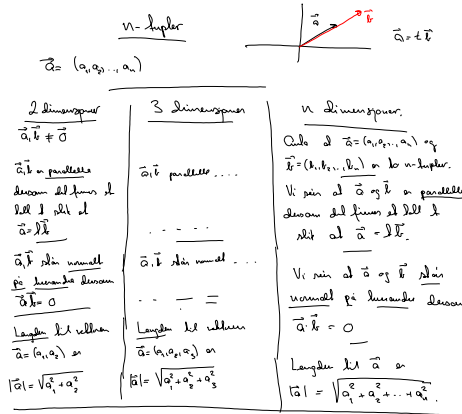 n-tupler
a⃗ = (a₁, a₂, ..., aₙ)
a⃗
b⃗
a⃗ = t b⃗
2 dimensjoner
a⃗, b⃗ ≠ 0⃗
a⃗, b⃗ er parallelle
dersom det finnes et
tall t slik at
a⃗ = t b⃗
a⃗, b⃗ står normalt
på hverandre dersom
a⃗·b⃗ = 0
Lengden til vektoren
a⃗ = (a₁, a₂) er
|a⃗| = √(a₁² + a₂²)
3 dimensjoner
a⃗, b⃗ parallelle ....
- - - - -
a⃗, b⃗ står normalt ...
.. - =
Lengden til vektoren
a⃗ = (a₁, a₂, a₃) er
|a⃗| = √(a₁² + a₂² + a₃²)
n dimensjoner.
Anta at a⃗ = (a₁, a₂, .., aₙ) og
b⃗ = (b₁, b₂, .., bₙ) er to n-tupler.
Vi sier at a⃗ og b⃗ er parallelle
dersom det finnes et tall t
slik at a⃗ = t b⃗.
Vi sier at a⃗ og b⃗ står
normalt på hverandre dersom
a⃗·b⃗ = 0
Lengden til a⃗ er
|a⃗| = √(a₁² + a₂² + ... + aₙ²).